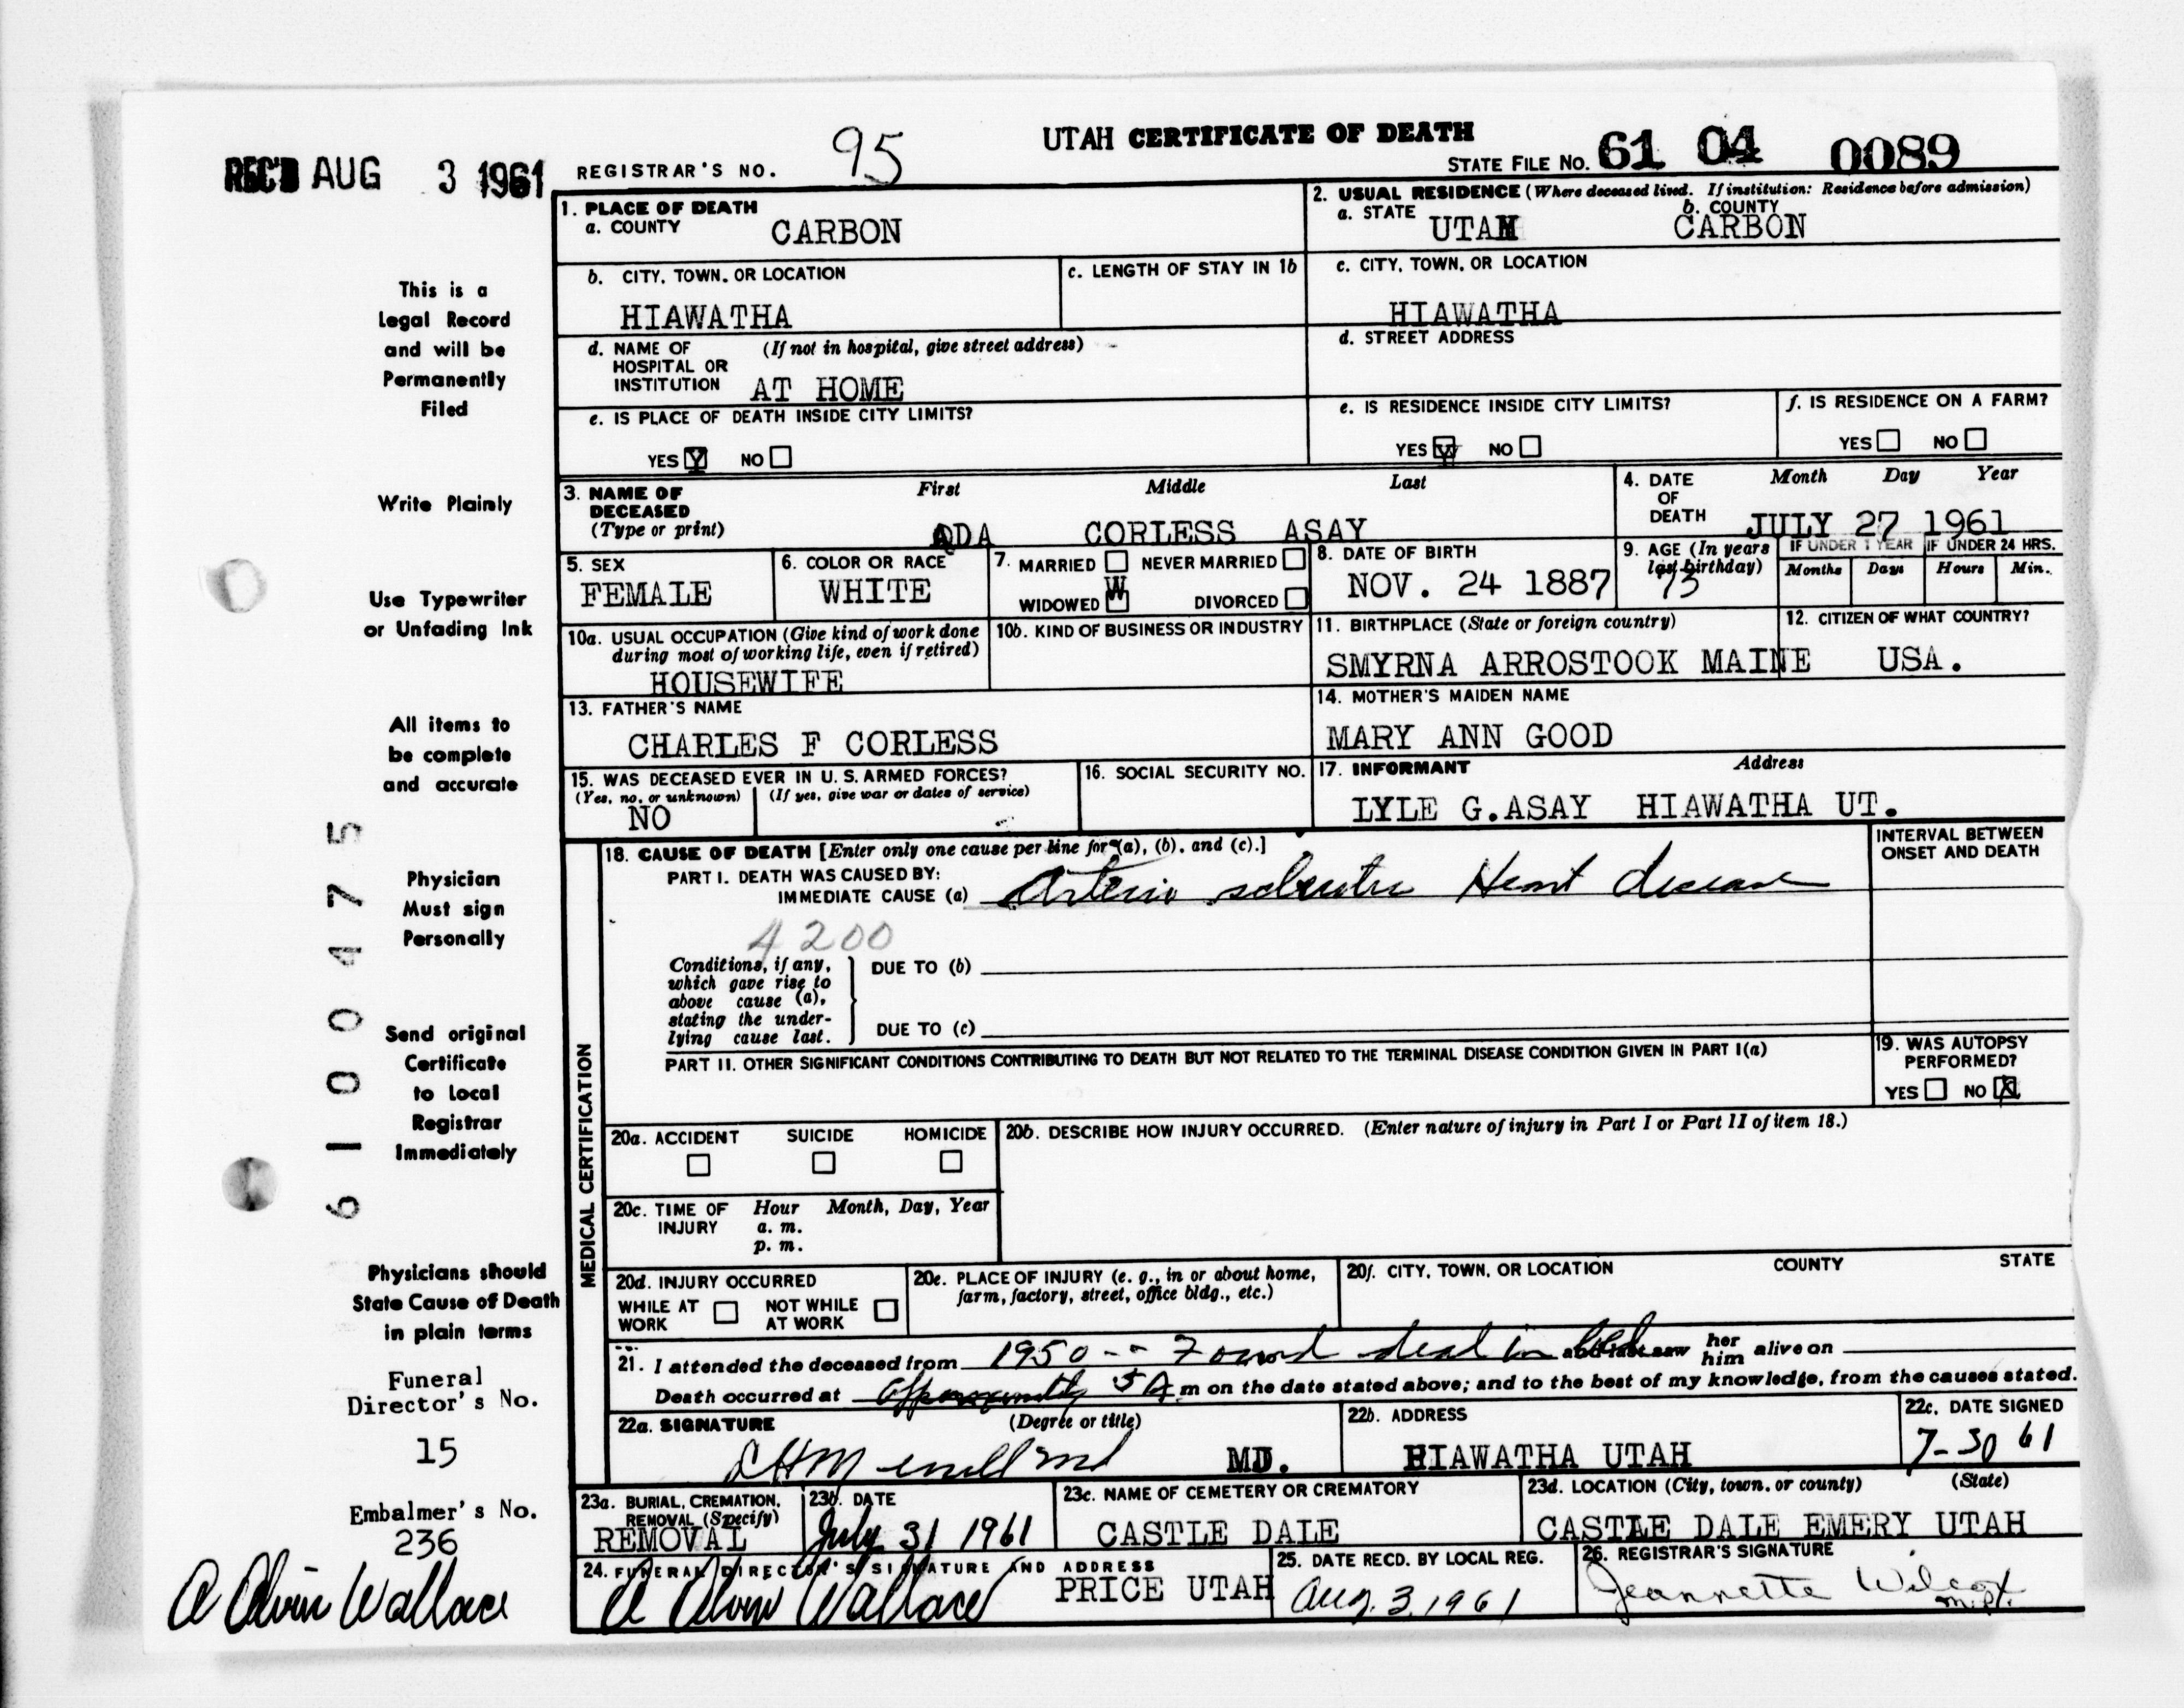 REC'D AUG 3 1961
REGISTRAR'S NO. 95
UTAH CERTIFICATE OF DEATH
STATE FILE NO. 61 04 0089
1. PLACE OF DEATH
a. COUNTY CARBON
2. USUAL RESIDENCE (Where deceased lived. If institution: Residence before admission)
a. STATE UTAH b. COUNTY CARBON
b. CITY, TOWN, OR LOCATION HIAWATHA
c. LENGTH OF STAY IN 1b
c. CITY, TOWN, OR LOCATION HIAWATHA
d. NAME OF HOSPITAL OR INSTITUTION (If not in hospital, give street address) AT HOME
d. STREET ADDRESS
e. IS PLACE OF DEATH INSIDE CITY LIMITS?
YES Y NO
e. IS RESIDENCE INSIDE CITY LIMITS?
YES Y NO
f. IS RESIDENCE ON A FARM?
YES NO
3. NAME OF DECEASED (Type or print)
First Middle Last
ADA CORLESS ASAY
4. DATE OF DEATH Month Day Year
JULY 27 1961
5. SEX FEMALE
6. COLOR OR RACE WHITE
7. MARRIED NEVER MARRIED
WIDOWED W DIVORCED
8. DATE OF BIRTH NOV. 24 1887
9. AGE (In years last birthday) 73
IF UNDER 1 YEAR IF UNDER 24 HRS.
Months Days Hours Min.
10a. USUAL OCCUPATION (Give kind of work done during most of working life, even if retired)
HOUSEWIFE
10b. KIND OF BUSINESS OR INDUSTRY
11. BIRTHPLACE (State or foreign country)
SMYRNA ARROSTOOK MAINE
12. CITIZEN OF WHAT COUNTRY?
USA.
13. FATHER'S NAME
CHARLES F CORLESS
14. MOTHER'S MAIDEN NAME
MARY ANN GOOD
15. WAS DECEASED EVER IN U. S. ARMED FORCES?
(Yes, no, or unknown) (If yes, give war or dates of service)
NO
16. SOCIAL SECURITY NO.
17. INFORMANT Address
LYLE G.ASAY HIAWATHA UT.
MEDICAL CERTIFICATION
18. CAUSE OF DEATH [Enter only one cause per line for (a), (b), and (c).]
INTERVAL BETWEEN ONSET AND DEATH
PART I. DEATH WAS CAUSED BY:
IMMEDIATE CAUSE (a) Arterio sclerotic Heart disease
4200
Conditions, if any, which gave rise to above cause (a), stating the underlying cause last.
DUE TO (b)
DUE TO (c)
PART II. OTHER SIGNIFICANT CONDITIONS CONTRIBUTING TO DEATH BUT NOT RELATED TO THE TERMINAL DISEASE CONDITION GIVEN IN PART I(a)
19. WAS AUTOPSY PERFORMED?
YES NO X
20a. ACCIDENT SUICIDE HOMICIDE
20b. DESCRIBE HOW INJURY OCCURRED. (Enter nature of injury in Part I or Part II of item 18.)
20c. TIME OF INJURY Hour Month, Day, Year
a. m.
p. m.
20d. INJURY OCCURRED
WHILE AT WORK NOT WHILE AT WORK
20e. PLACE OF INJURY (e. g., in or about home, farm, factory, street, office bldg., etc.)
20f. CITY, TOWN, OR LOCATION COUNTY STATE
21. I attended the deceased from 1950 -- Found dead in bed and last saw her him alive on
Death occurred at approximately 5 A m on the date stated above; and to the best of my knowledge, from the causes stated.
22a. SIGNATURE (Degree or title)
MD.
22b. ADDRESS
HIAWATHA UTAH
22c. DATE SIGNED
7-30 61
23a. BURIAL, CREMATION, REMOVAL (Specify)
REMOVAL
23b. DATE
July 31 1961
23c. NAME OF CEMETERY OR CREMATORY
CASTLE DALE
23d. LOCATION (City, town, or county) (State)
CASTLE DALE EMERY UTAH
24. FUNERAL DIRECTOR'S SIGNATURE AND ADDRESS
A Alvin Wallace PRICE UTAH
25. DATE RECD. BY LOCAL REG.
Aug. 3, 1961
26. REGISTRAR'S SIGNATURE
Jeannette Wilcox
This is a
Legal Record
and will be
Permanently
Filed
Write Plainly
Use Typewriter
or Unfading Ink
All items to
be complete
and accurate
Physician
Must sign
Personally
Send original
Certificate
to Local
Registrar
Immediately
Physicians should
State Cause of Death
in plain terms
61 00475
Funeral
Director's No.
15
Embalmer's No.
236
A Alvin Wallace